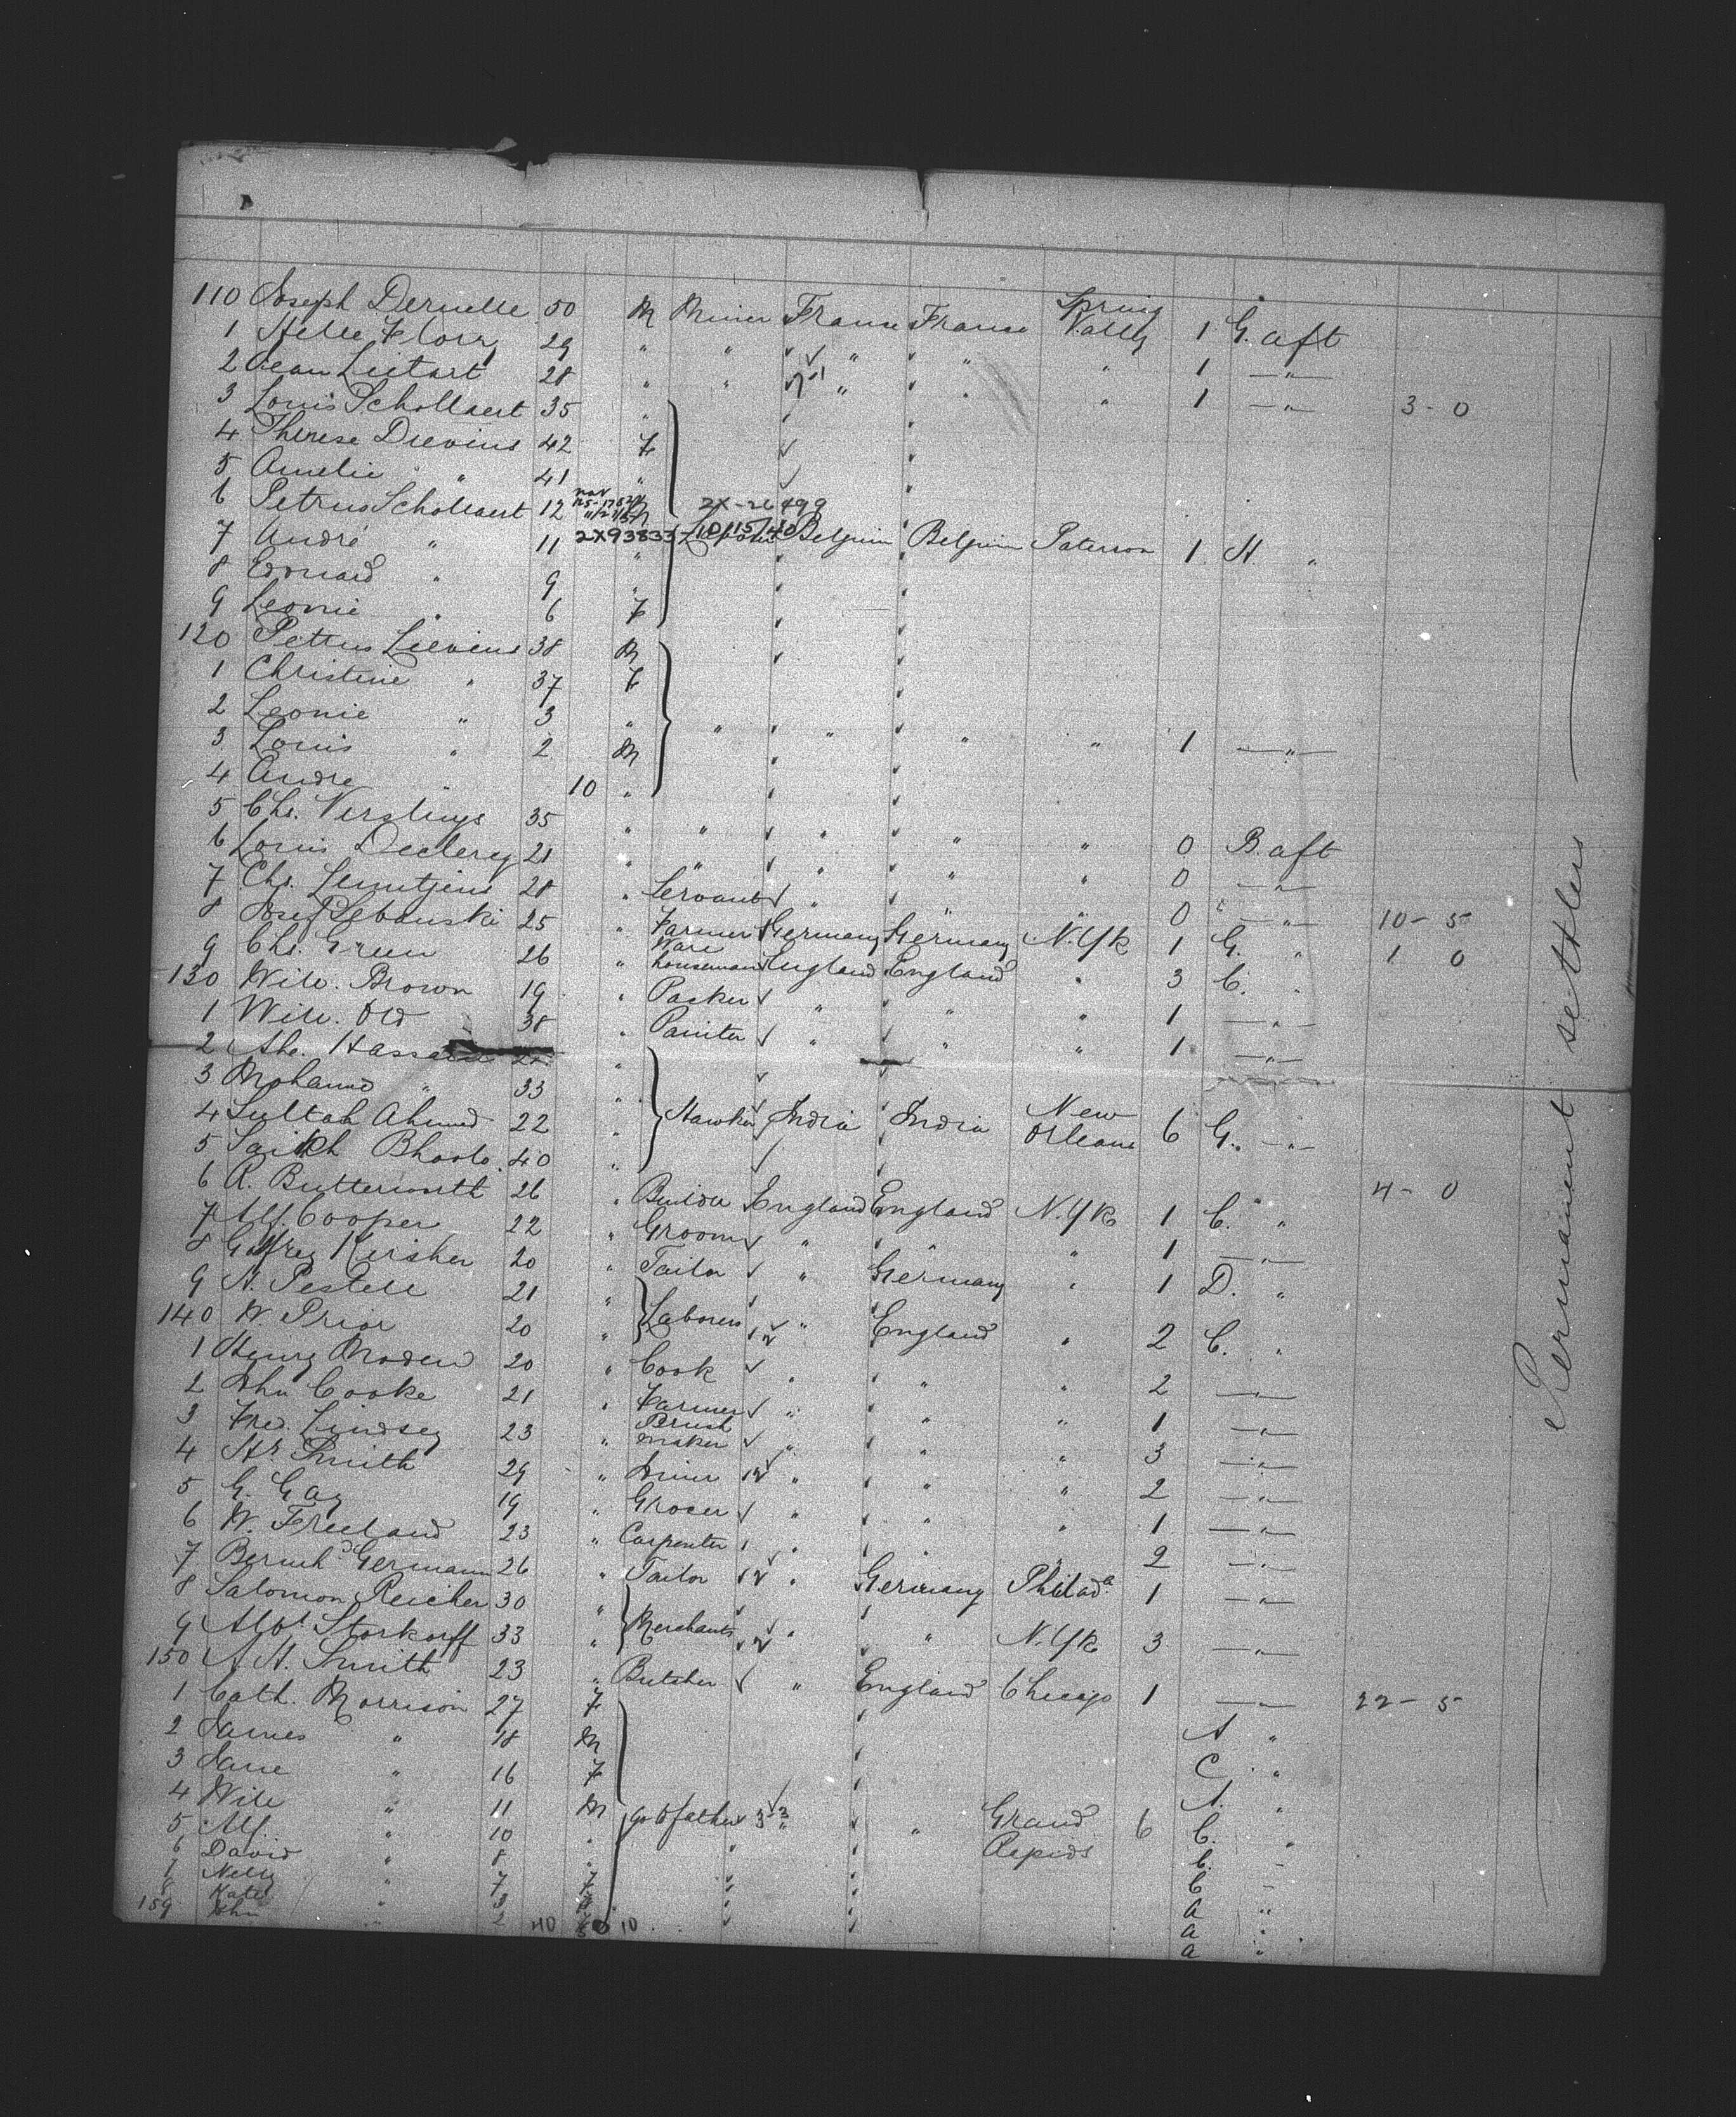 110 Joseph Deruelle 50 M Miner France France Spring Valley 1 G. aft
1 29 " " " " " 1 — " —
2 Jean Lietart 28 " " " " " 1 — " —
3 Louis Schollaert 35 " 3 - 0
4 Therese Lievens 42 F
5 Amelie " 41 "
6 Petrus Schollaert 12 M 2X-26499
7 André " 11 2X93833 10/15/40 Belgium Belgium Paterson 1 H. "
8 Edouard " 9 "
9 Leonie " 6 F
120 Pettrus Lievens 38 M
1 Christine " 37 F
2 Leonie " 3 " " " " " 1 — " —
3 Louis " 2 M
4 Andre 10 "
5 Chs. Versluys 35 " " " " " 0 B. aft
6 Louis Declercq 21 " " " " " 0 — " —
7 Chs. Lemtjens 28 " Servant " " " 0 — " — 10 - 5
8 Josef Lebanski 25 " Farmer Germany Germany N.Yk 1 G. " 1 0
9 Chs. Green 26 " Ware houseman England England " 3 C. "
130 Will. Brown 19 " Packer " " " 1 — " —
1 Will. Old 38 " Painter " " " 1 — " —
2 Hassan "
3 Mohamed " 33 "
4 Sultah Ahmed 22 " Hawker India India New Orleans 6 G. — " —
5 Saikh Bhoolo 40 "
6 R. Butterworth 26 " Builder England England N.Yk 1 C. " 4 - 0
7 Alf. Cooper 22 " Groom " " " 1 — " —
8 Kirsher 20 " Tailor " Germany " 1 D. "
9 A. Pestell 21 "
140 W. Prior 20 " Laborers " England " 2 C. "
1 Henry Moden 20 " Cook " " " 2 — " —
2 John Cooke 21 " Farmer " " " 1 — " —
3 Fred. Lindsey 23 " Brush maker " " " 3 — " —
4 Hy. Smith 29 " Joiner " " " 2 — " —
5 G. Gay 19 " Grocer " " " 1 — " —
6 W. Freeland 23 " Carpenter " " " 2 — " —
7 Bernhd. Germann 26 " Tailor " Germany Philada 1 — " —
8 Salomon Reicher 30 "
9 Albt. Storkorff 33 " Merchants " " N.Yk 3 — " —
150 A H. Smith 23 " Butcher " England Chicago 1 — " — 22 - 5
1 Cath. Morrison 27 F A "
2 James " 18 M C "
3 Jane " 16 F A. "
4 Will " 11 M go to father " " Grand Rapids 6 C. "
5 Alf " 10 " C. "
6 David " 8 " C "
7 Nelly " 7 F A "
8 Kate " 3 " a "
159 John " 2 10 a "
Permanent settlers